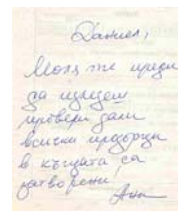 Даниел,
Моля те преди
да излезеш
провери дали
всички прозорци
в къщата са
затворени.
Ани